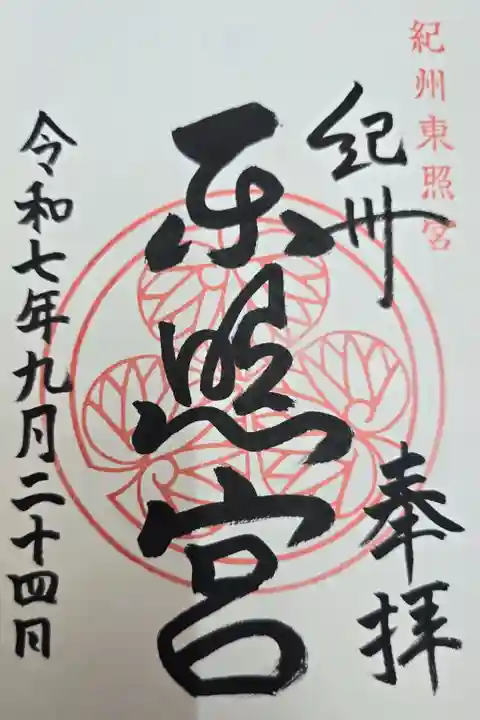 紀州東照宮
紀州
奉拝
东照宮
令和七年九月二十四日